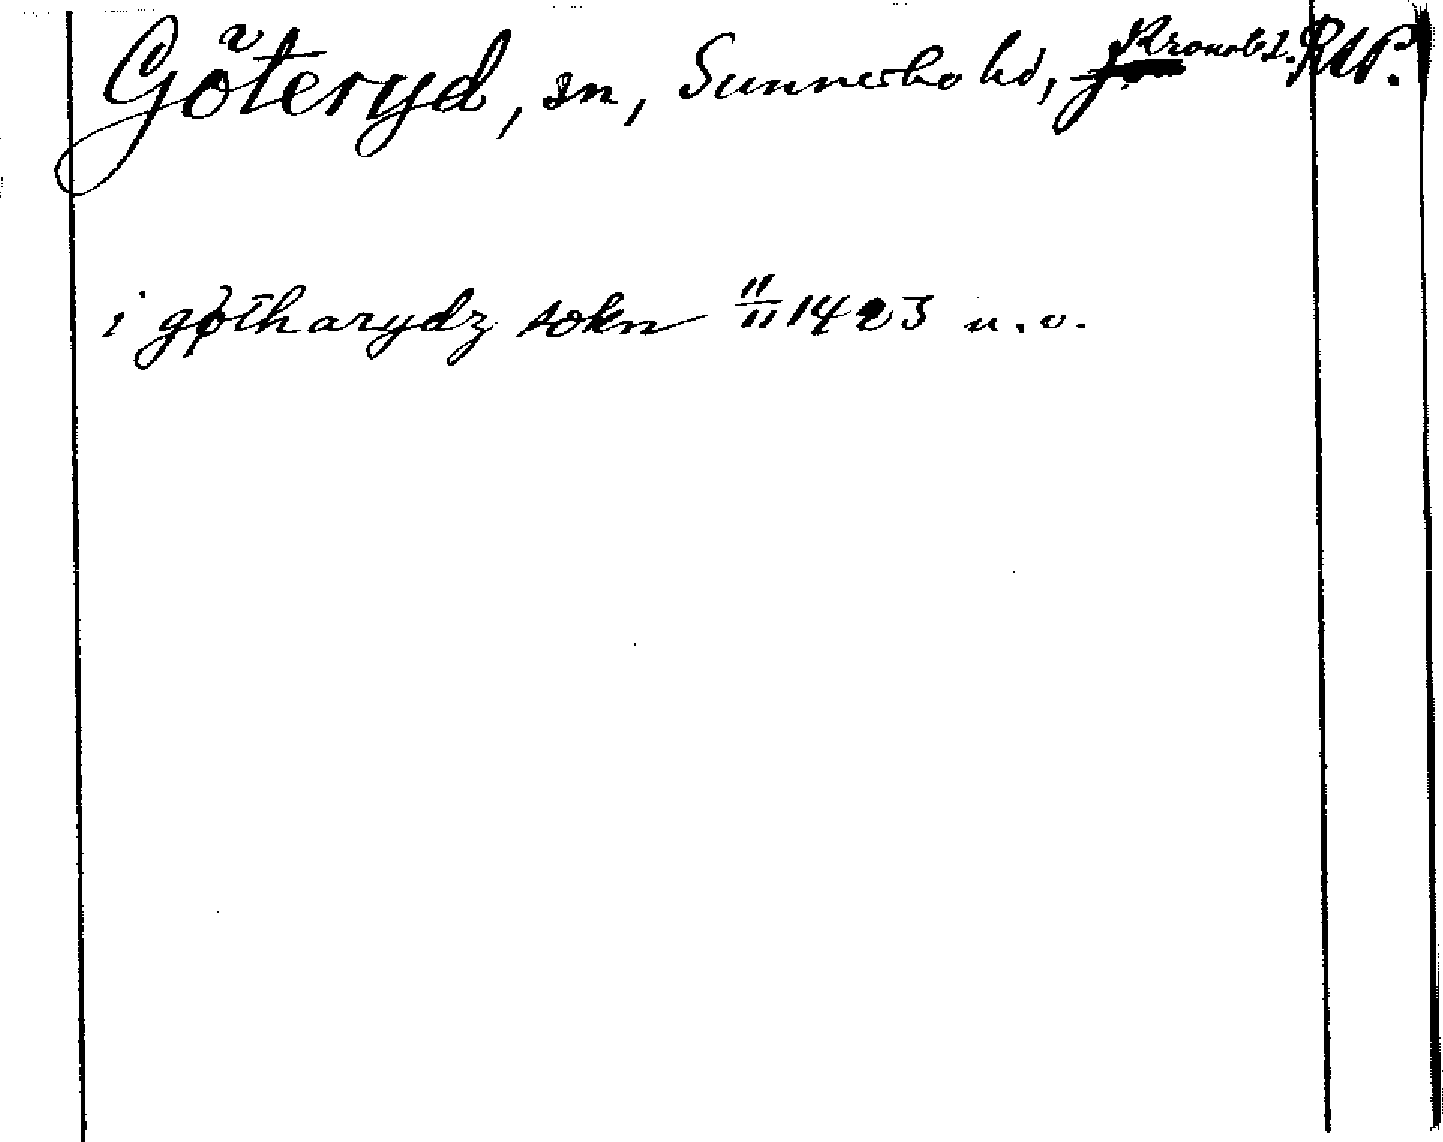 Göteryd, sn, Sunnerbo hd, Kronob l. RAP.
i gøtharydz sokn 11/11 1423 u.o.